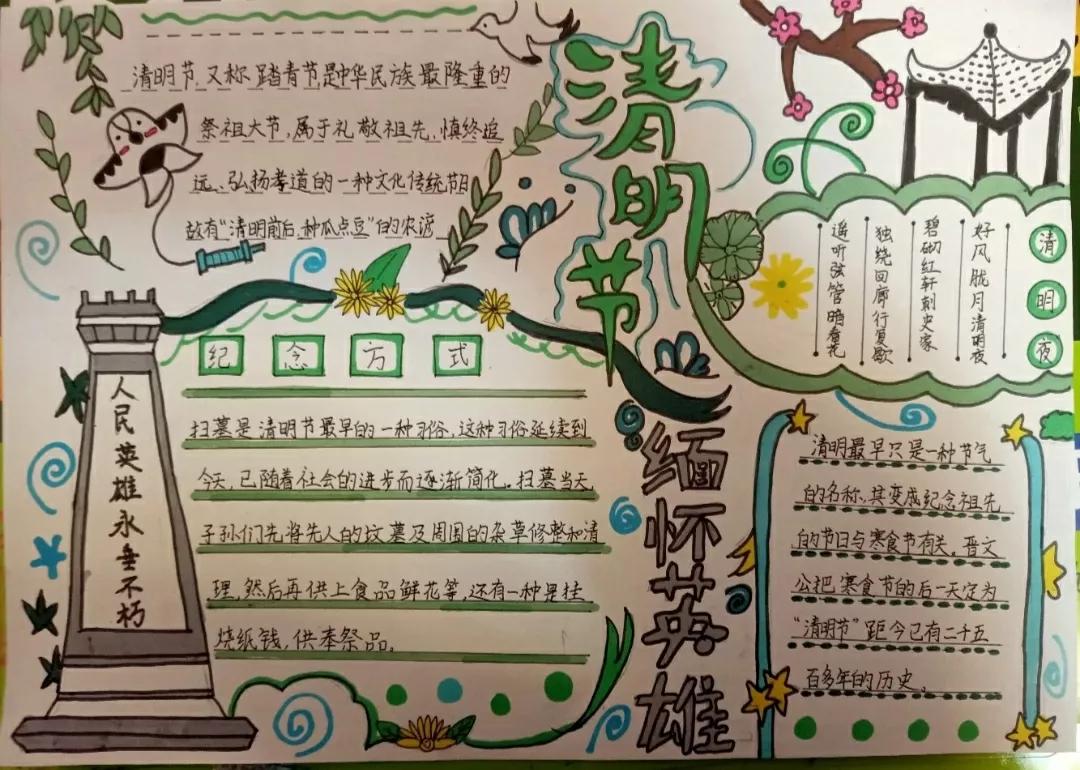 清明节
清明节,又称踏青节,是中华民族最隆重的
祭祖大节,属于礼敬祖先、慎终追
远、弘扬孝道的一种文化传统节日
故有“清明前后,种瓜点豆”的农谚
清明夜
好风胧月清明夜
碧砌红轩刺史家
独绕回廊行复歇
遥听弦管暗看花
纪念方式
扫墓是清明节最早的一种习俗,这种习俗延续到
今天,已随着社会的进步而逐渐简化。扫墓当天
子孙们先将先人的坟墓及周围的杂草修整和清
理,然后再供上食品鲜花等,还有一种是挂
烧纸钱,供奉祭品。
人民英雄永垂不朽
缅怀英雄
清明最早只是一种节气
的名称,其变成纪念祖先
的节日与寒食节有关。晋文
公把寒食节的后一天定为
“清明节”距今已有二千五
百多年的历史。